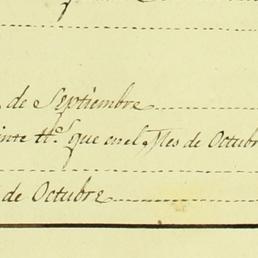 de Septiembre
inte ttº. que en el Mes de Octubr
de Octubre